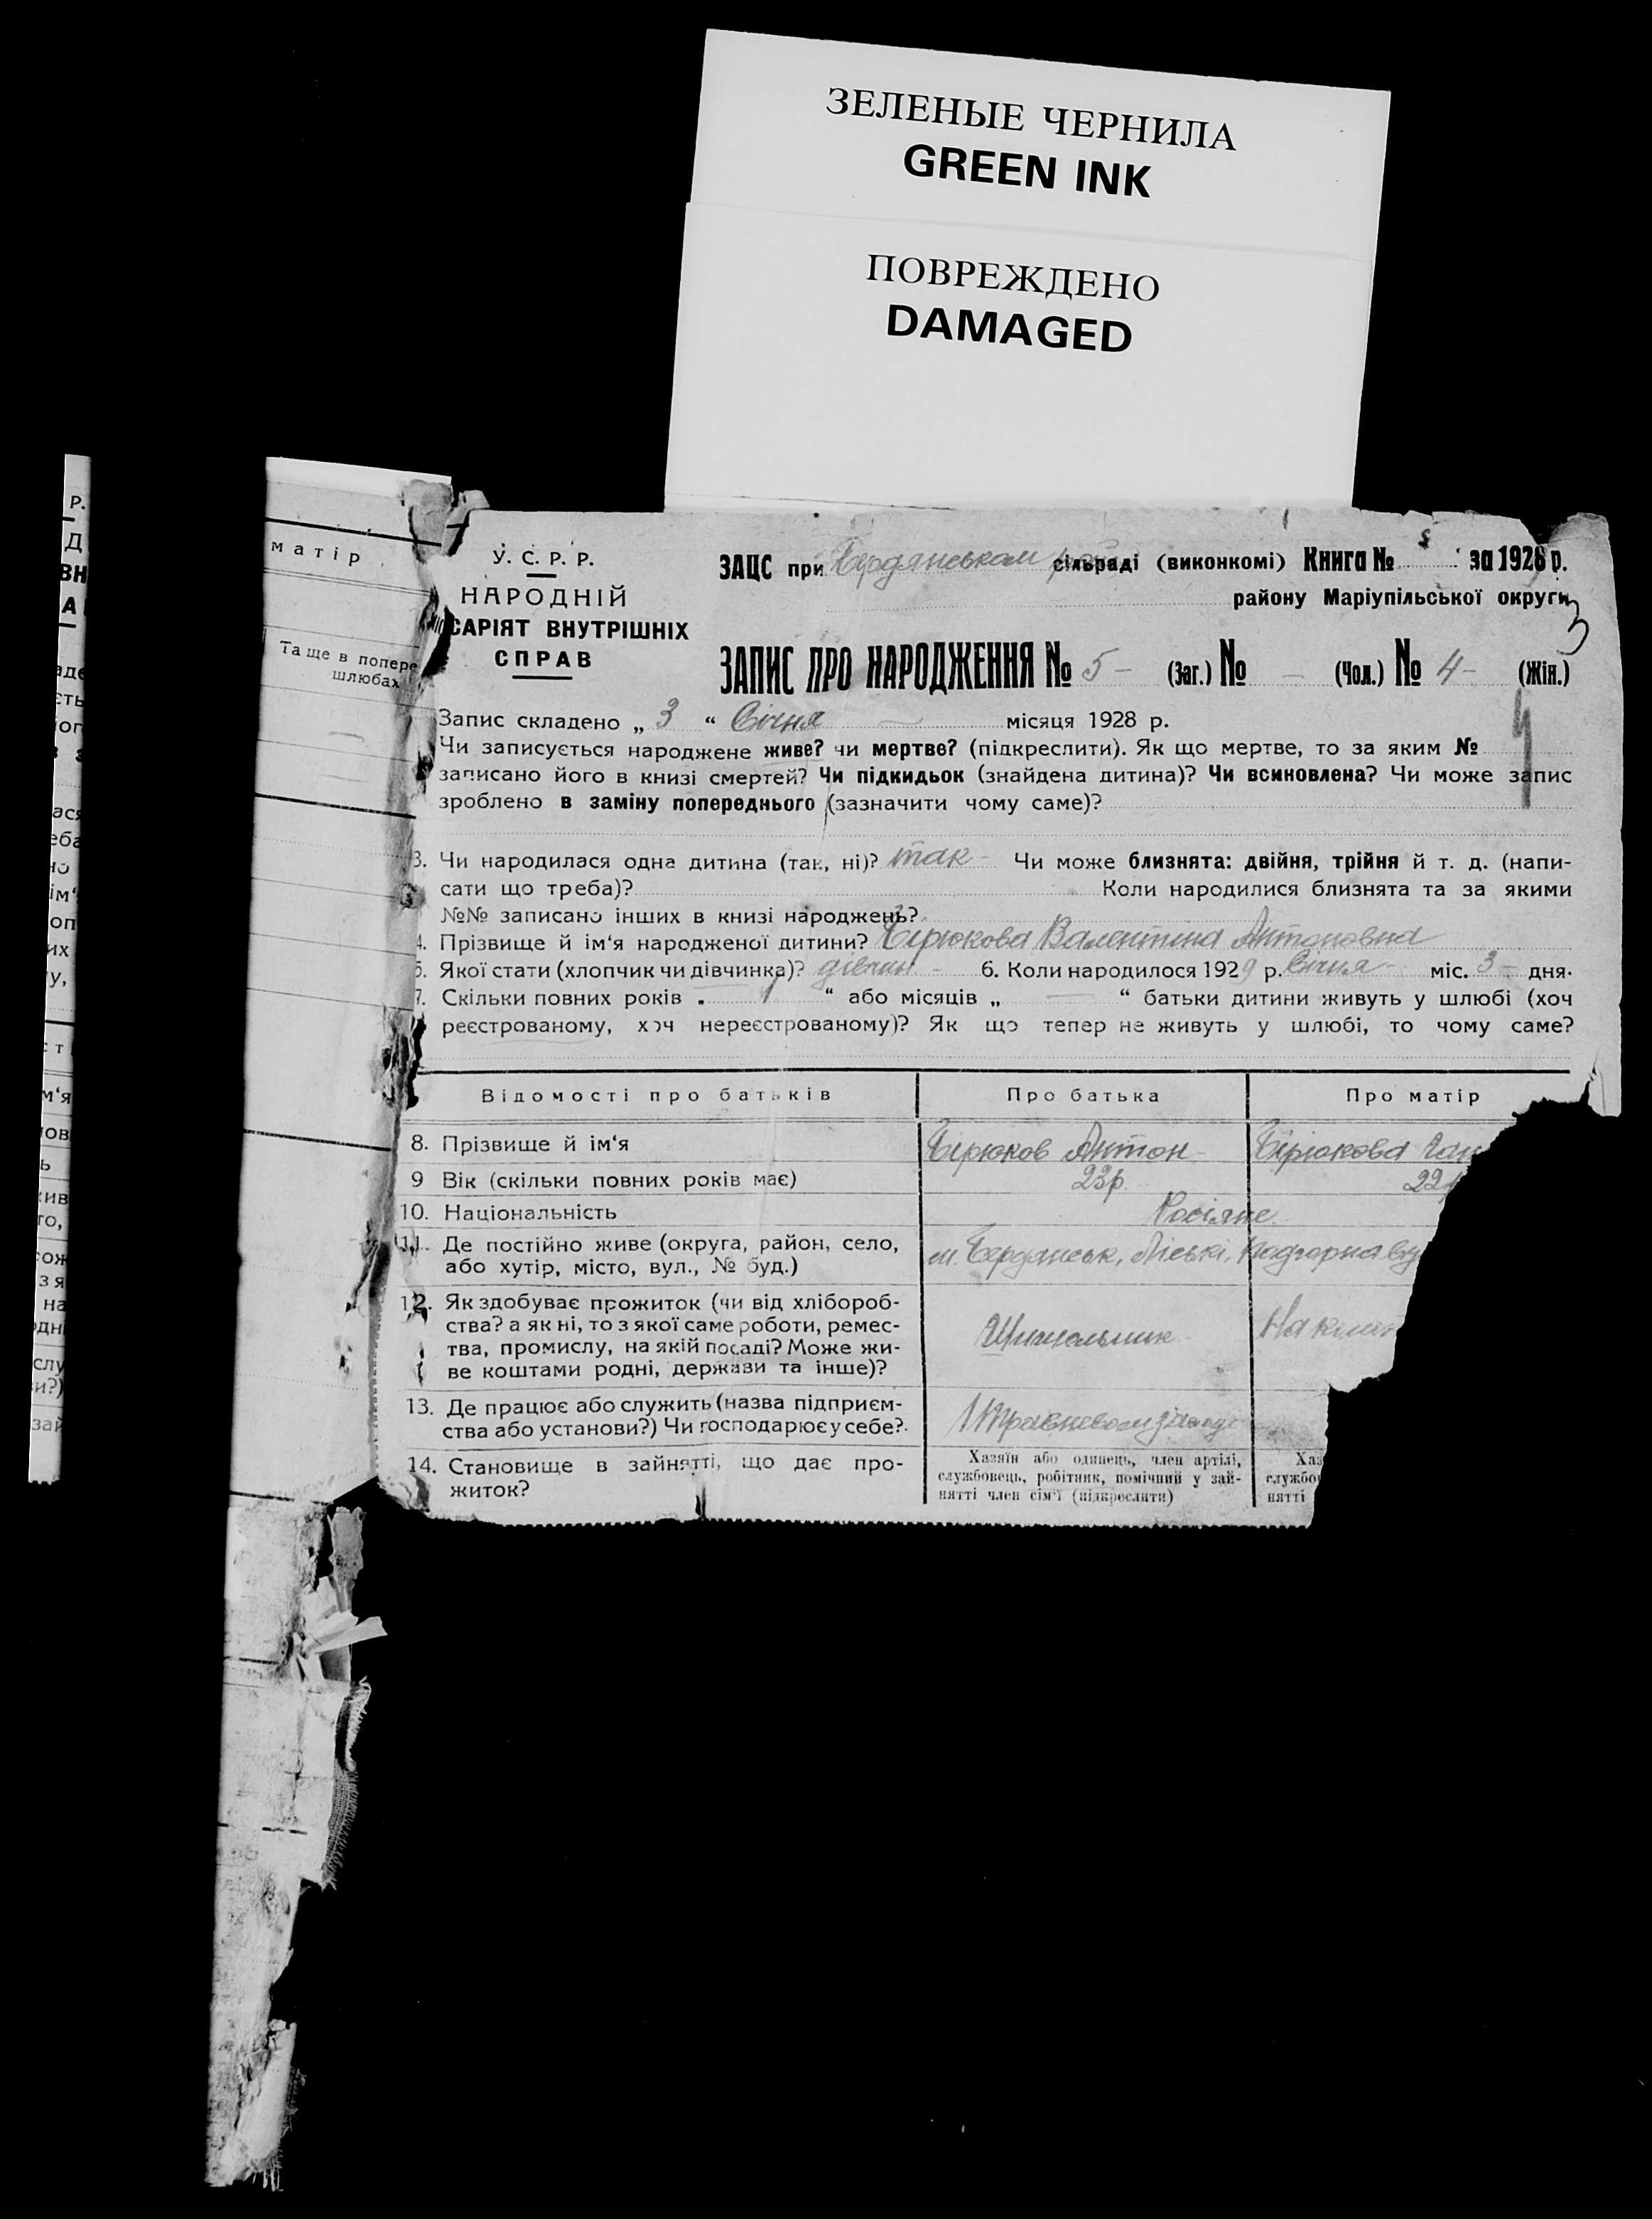 ЗЕЛЕНЫЕ ЧЕРНИЛА
GREEN INK
ПОВРЕЖДЕНО
DAMAGED
матір
Та ще в попере
шлюбах
У. С. Р. Р.
НАРОДНІЙ
САРІЯТ ВНУТРІШНІХ
СПРАВ
ЗАЦС при Бердянськом сільраді (виконкомі) Книга № за 1928 р.
району Маріупільської округи
3
ЗАПИС ПРО НАРОДЖЕННЯ № 5 – (Заг.) № – (Чол.) № 4 – (Жін.)
Запис складено „ 3 “ Січня місяця 1928 р.
Чи записується народжене живе? чи мертве? (підкреслити). Як що мертве, то за яким №
записано його в книзі смертей? Чи підкидьок (знайдена дитина)? Чи всиновлена? Чи може запис
зроблено в заміну попереднього (зазначити чому саме)?
3. Чи народилася одна дитина (так, ні)? так – Чи може близнята: двійня, трійня й т. д. (напи-
сати що треба)? Коли народилися близнята та за якими
№№ записано інших в книзі народжень?
4. Прізвище й ім‘я народженої дитини? Бірюкова Валентина Антоновна
5. Якої стати (хлопчик чи дівчинка)? дівчин – 6. Коли народилося 1929 р. Січня – міс. 3 – дня.
7. Скільки повних років „ 1 “ або місяців „ — “ батьки дитини живуть у шлюбі (хоч
реєстрованому, хоч нереєстрованому)? Як що тепер не живуть у шлюбі, то чому саме?
Відомості про батьків Про батька Про матір
8. Прізвище й ім‘я Бірюков Антон – Бірюкова Ган
9 Вік (скільки повних років має) 23р. 22р
10. Національність Росіяне.
11. Де постійно живе (округа, район, село,
або хутір, місто, вул., № буд.) м. Бердянськ, Ліскі, Надгорна ву
12. Як здобуває прожиток (чи від хлібороб-
ства? а як ні, то з якої саме роботи, ремес-
тва, промислу, на якій посаді? Може жи-
ве коштами родні, держави та інше)?
13. Де працює або служить (назва підприєм-
ства або установи?) Чи господарює у себе?
14. Становище в зайнятті, що дає про-
житок?
Хазяїн або одинець, член артілі,
службовець, робітник, помічний у зай-
нятті член сім‘ї (підкреслити)
Хаз
службо
нятті